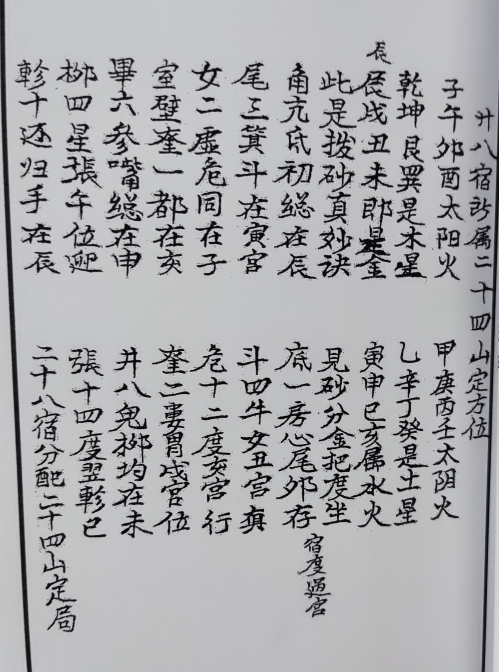 廾八宿所属二十四山定方位
子午卯酉太阳火
甲庚丙壬太阴火
乾坤艮巽是木星
乙辛丁癸是土星
辰
辰戌丑未即是金
寅申巳亥属水火
此是拨砂真妙诀
見砂分金把度坐
角亢氐初総在辰
底一房心尾卯存
宿度過宫
尾三箕斗在寅宫
斗四牛女丑宫
女二虚危同在子
危十二度亥宫行
室壁奎一都在亥
奎二婁胃戌宫位
畢六参嘴総在申
井八鬼柳均在未
柳四星張午位
張十四度翌軫巳
軫十还归手在辰
二十八宿分配二十四山定局